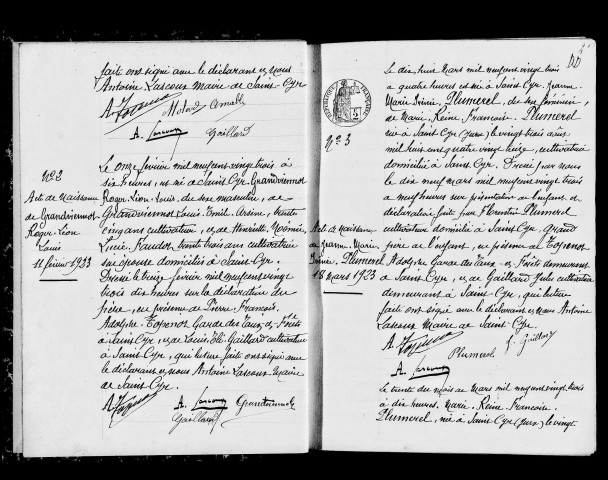 fait ont signé avec le déclarant et Nous
Antoine Lascoux Maire de Saint Cyr
A. Lascoux
Gaillard
N° 2
Acte de Naissance
de Grandviennot
Roger Léon
Louis
11 février 1923
Le onze février mil neuf cent vingt trois à
six heures, est né à Saint Cyr Grandviennot
Roger Léon Louis, de sexe masculin, de
Grandviennot Louis Emile Arsène, trente
cinq ans cultivateur, et de Henriette Noémie
Lucie, trente trois ans cultivatrice
son épouse domiciliés à Saint Cyr.
Dressé le treize février mil neuf cent vingt
trois dix heures sur la déclaration du
père, en présence de Pierre François
Adolphe Garde des Eaux et Forêts
à Saint Cyr, et de Louis Gaillard cultivateur
à Saint Cyr, qui lecture faite ont signé avec
le déclarant et Nous Antoine Lascoux Maire
de Saint Cyr.
A. Lascoux Grandviennot
Gaillard
RÉPUBLIQUE FRANÇAISE
N° 3
Acte de Naissance
de Jeanne Marie
Irénée Plumerel
18 Mars 1923
Le dix huit Mars mil neuf cent vingt trois
à quatre heures est née à Saint Cyr Jeanne
Marie Irénée Plumerel, de sexe féminin,
de Marie Reine Françoise Plumerel
née à Saint Cyr (Jura) le vingt trois août
mil huit cent quatre vingt treize, cultivatrice
domiciliée à Saint Cyr. Dressé par nous
le dix neuf mars mil neuf cent vingt trois
à neuf heures sur présentation de l'enfant et
déclaration faite par Florentin Plumerel
cultivateur domicilié à Saint Cyr, Grand
père de l'enfant, en présence de
Adolphe Garde des Eaux et Forêts demeurant
à Saint Cyr, et de Gaillard Jules cultivateur
demeurant à Saint Cyr, qui lecture
faite ont signé avec le déclarant et Nous Antoine
Lascoux Maire de Saint Cyr.
Plumerel J. Gaillard
A. Lascoux
Le trente du mois de Mars mil neuf cent vingt trois
à dix heures, Marie Reine Françoise
Plumerel, née à Saint Cyr (Jura) le vingt